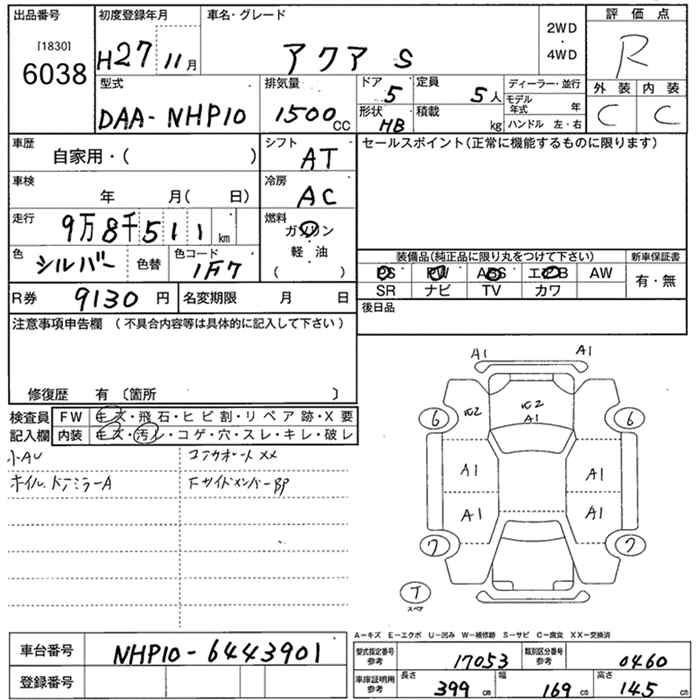 出品番号 初度登録年月 車名・グレード 2WD・4WD 評価点
[1830] 6038 H27 11月 アクア S R
型式 排気量 ドア 5 定員 5人 ディーラー・並行 外装 内装
DAA-NHP10 1500cc 形状 HB 積載 kg モデル年式 年 C C
ハンドル 左・右
車歴 自家用・( ) シフト AT セールスポイント(正常に機能するものに限ります)
車検 年 月( 日) 冷房 AC
走行 9万8千511km 燃料 ガソリン 軽・油 ( )
色 シルバー 色替 色コード 1F7
装備品(純正品に限り丸をつけて下さい) 新車保証書
PS PW ABS エアB AW 有・無
SR ナビ TV カワ
R券 9130円 名変期限 月 日 後日品
注意事項申告欄 (不具合内容等は具体的に記入して下さい)
修復歴 有 〔箇所 〕
検査員記入欄 FW キズ・飛石・ヒビ割・リペア跡・X要
内装 キズ・汚レ・コゲ・穴・スレ・キレ・破レ
小AU コアサポートXX
ホイル、ドアミラーA FサイドメンバーBP
A1 A1
2 2 A1
6 6
A1 A1
A1 A1
7 7
T
スペア
A-キズ E-エクボ U-凹み W-補修跡 S-サビ C-腐食 XX-交換済
車台番号 NHP10-6443901
登録番号
型式指定番号 参考 17053 類別区分番号 参考 0460
車庫証明用 参考 長さ 399cm 幅 169cm 高さ 145cm